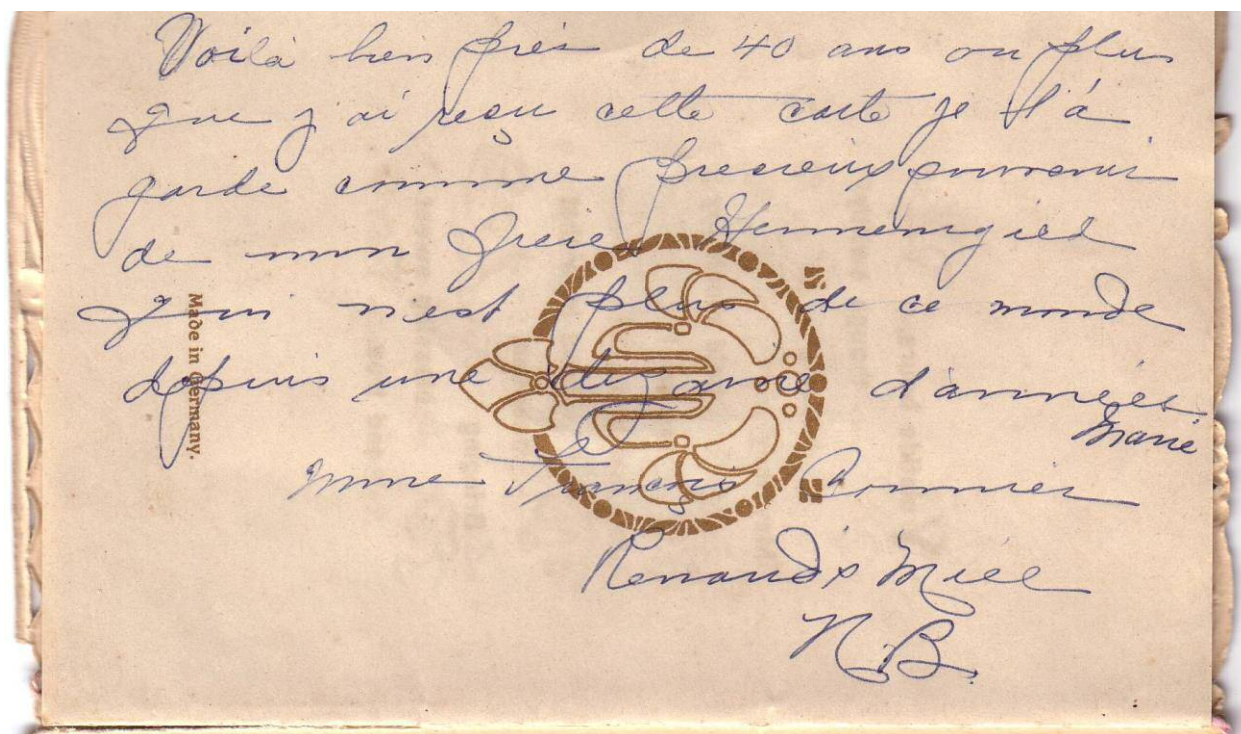 Voilà bien près de 40 ans ou plus
que j ai reçu cette carte je l'a
garde comme precieux souvenir
de mon frere Hermenigild
qui nest plus de ce monde
depuis une dizaine d'années
Marie
Mme François Bonnier
Renauds Mill
N.B.
Made in Germany.